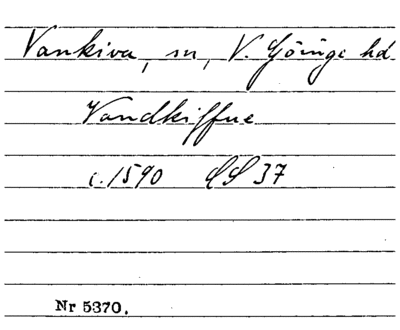 Vankiva, sn, V. Göinge hd
Vandkiffue
c. 1590 LS 37
Nr 5370.